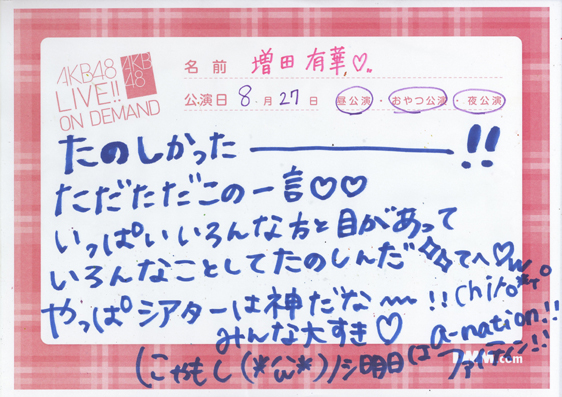 AKB48
LIVE!!
ON DEMAND
AKB
48
名前 増田有華♡
公演日 8月27日 昼公演・おやつ公演・夜公演
たのしかった――――!!
ただただこの一言♡♡
いっぱいいろんな方と目があって
いろんなことしてたのしんだ
てへ♡w
やっぱシアターは神だな〜!!
みんな大すき♡
明日は
a-nation!!
.com